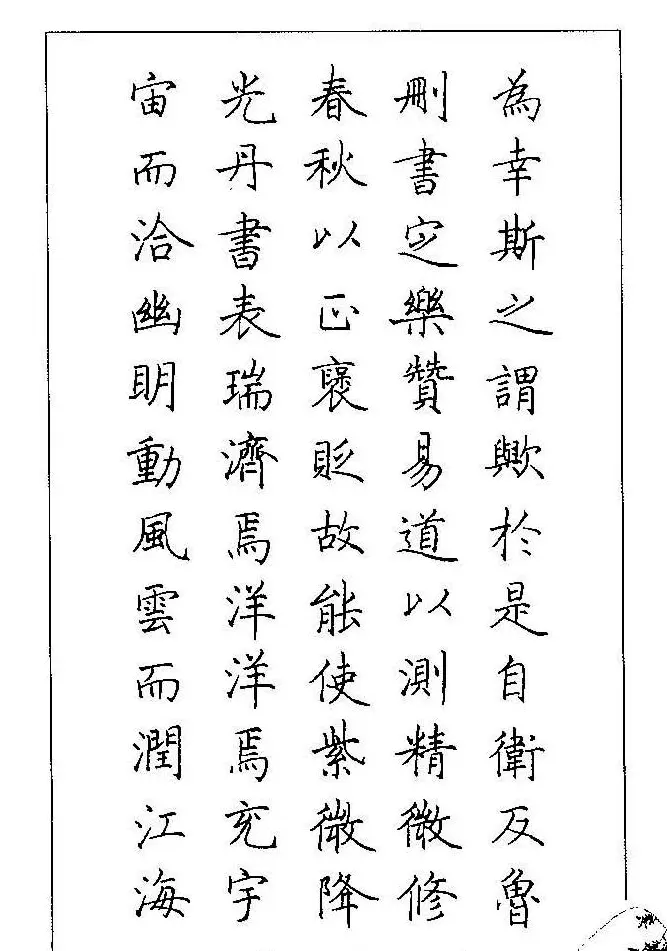 為幸斯之謂歟於是自衛反魯
刪書定樂贊易道以測精微修
春秋以正褒貶故能使紫微降
光丹書表瑞濟焉洋洋焉充宇
宙而洽幽明動風雲而潤江海